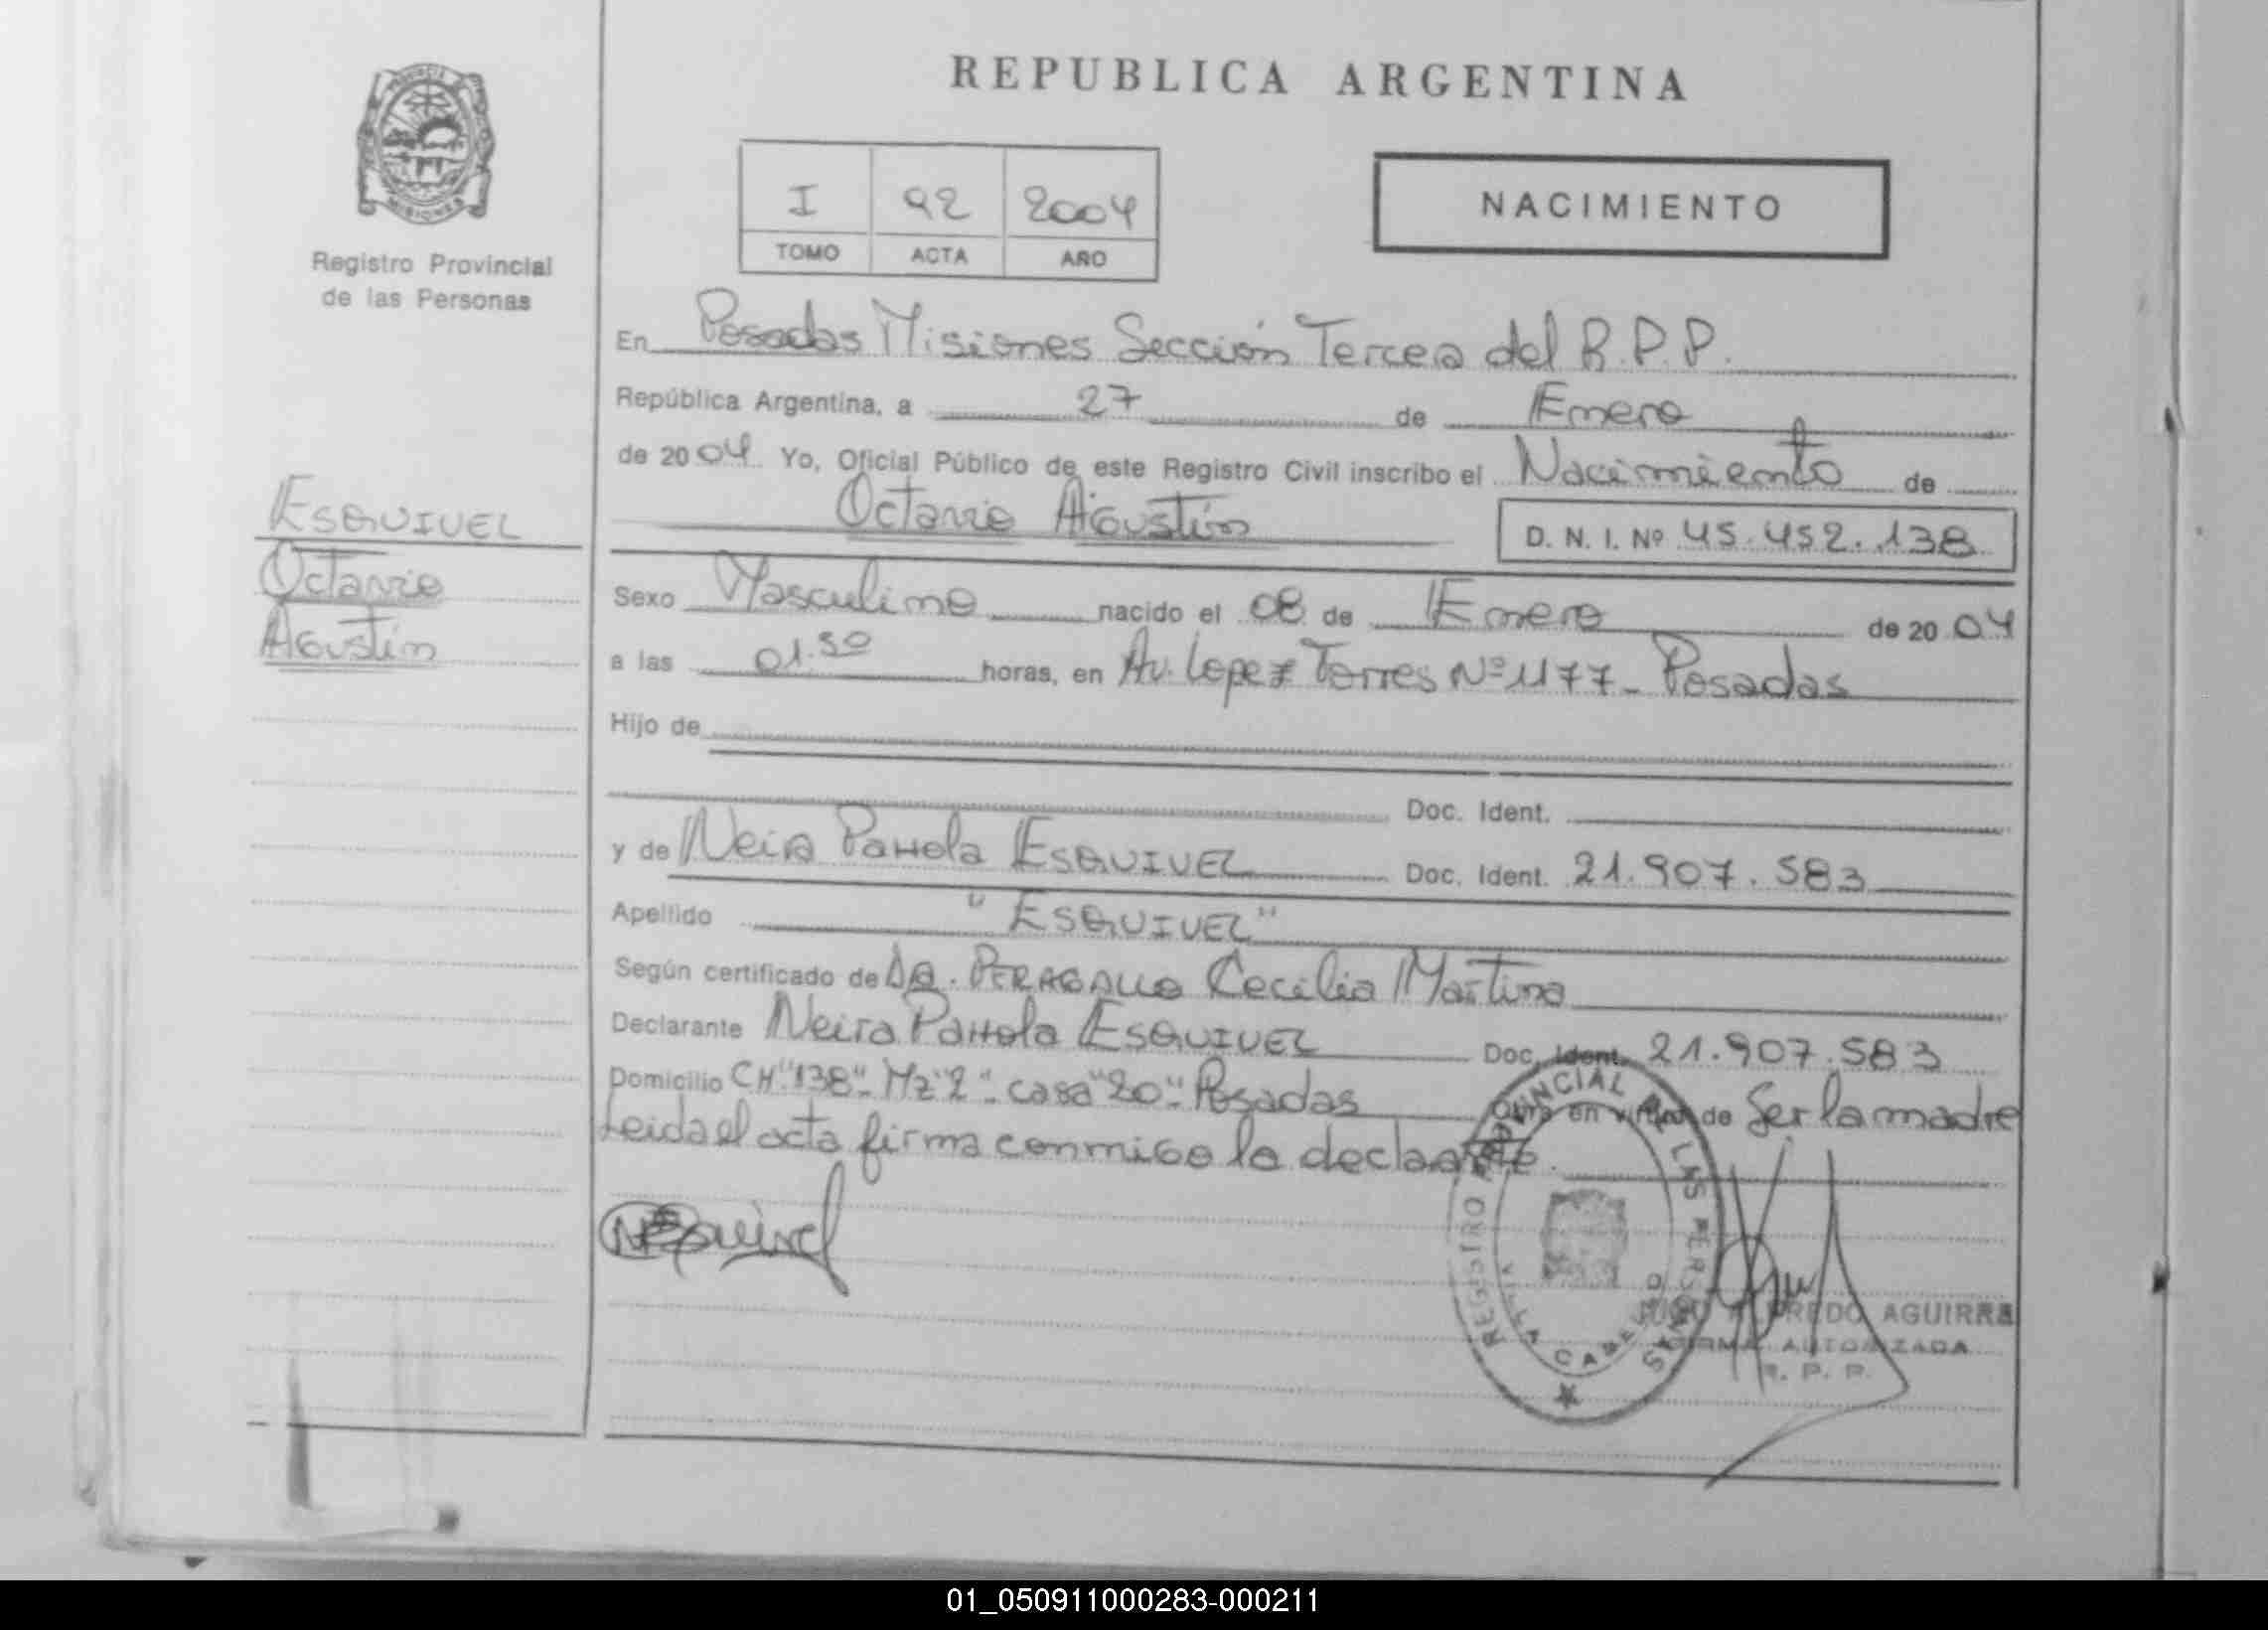 REPUBLICA ARGENTINA
MISIONES
Registro Provincial
de las Personas
I 92 2004
TOMO ACTA AÑO
NACIMIENTO
En Posadas Misiones Sección Tercera del R.P.P.
República Argentina, a 27 de Enero
de 2004 Yo, Oficial Público de este Registro Civil inscribo el Nacimiento de
Octavio Agustín
D. N. I. Nº 45.452.138
ESQUIVEL
Octavio
Agustín
Sexo Masculino nacido el 08 de Enero de 2004
a las 01.50 horas, en Av. Lopez Torres Nº 1177 - Posadas
Hijo de
Doc. Ident.
y de Neira ESQUIVEL Doc. Ident. 21.907.583
Apellido "ESQUIVEL"
Según certificado de DRA. PERAGALLO Cecilia Martina
Declarante Neira ESQUIVEL Doc. Ident. 21.907.583
Domicilio CH "138" - Mz "2" - casa "20" - Posadas
Obra en virtud de Ser la madre
Leida el acta firma conmigo la declarante.
NEsquivel
REGISTRO PROVINCIAL DE LAS PERSONAS
VILLA CABELLO
ALFREDO AGUIRRE
FIRMA AUTORIZADA
R. P. P.
01_050911000283-000211